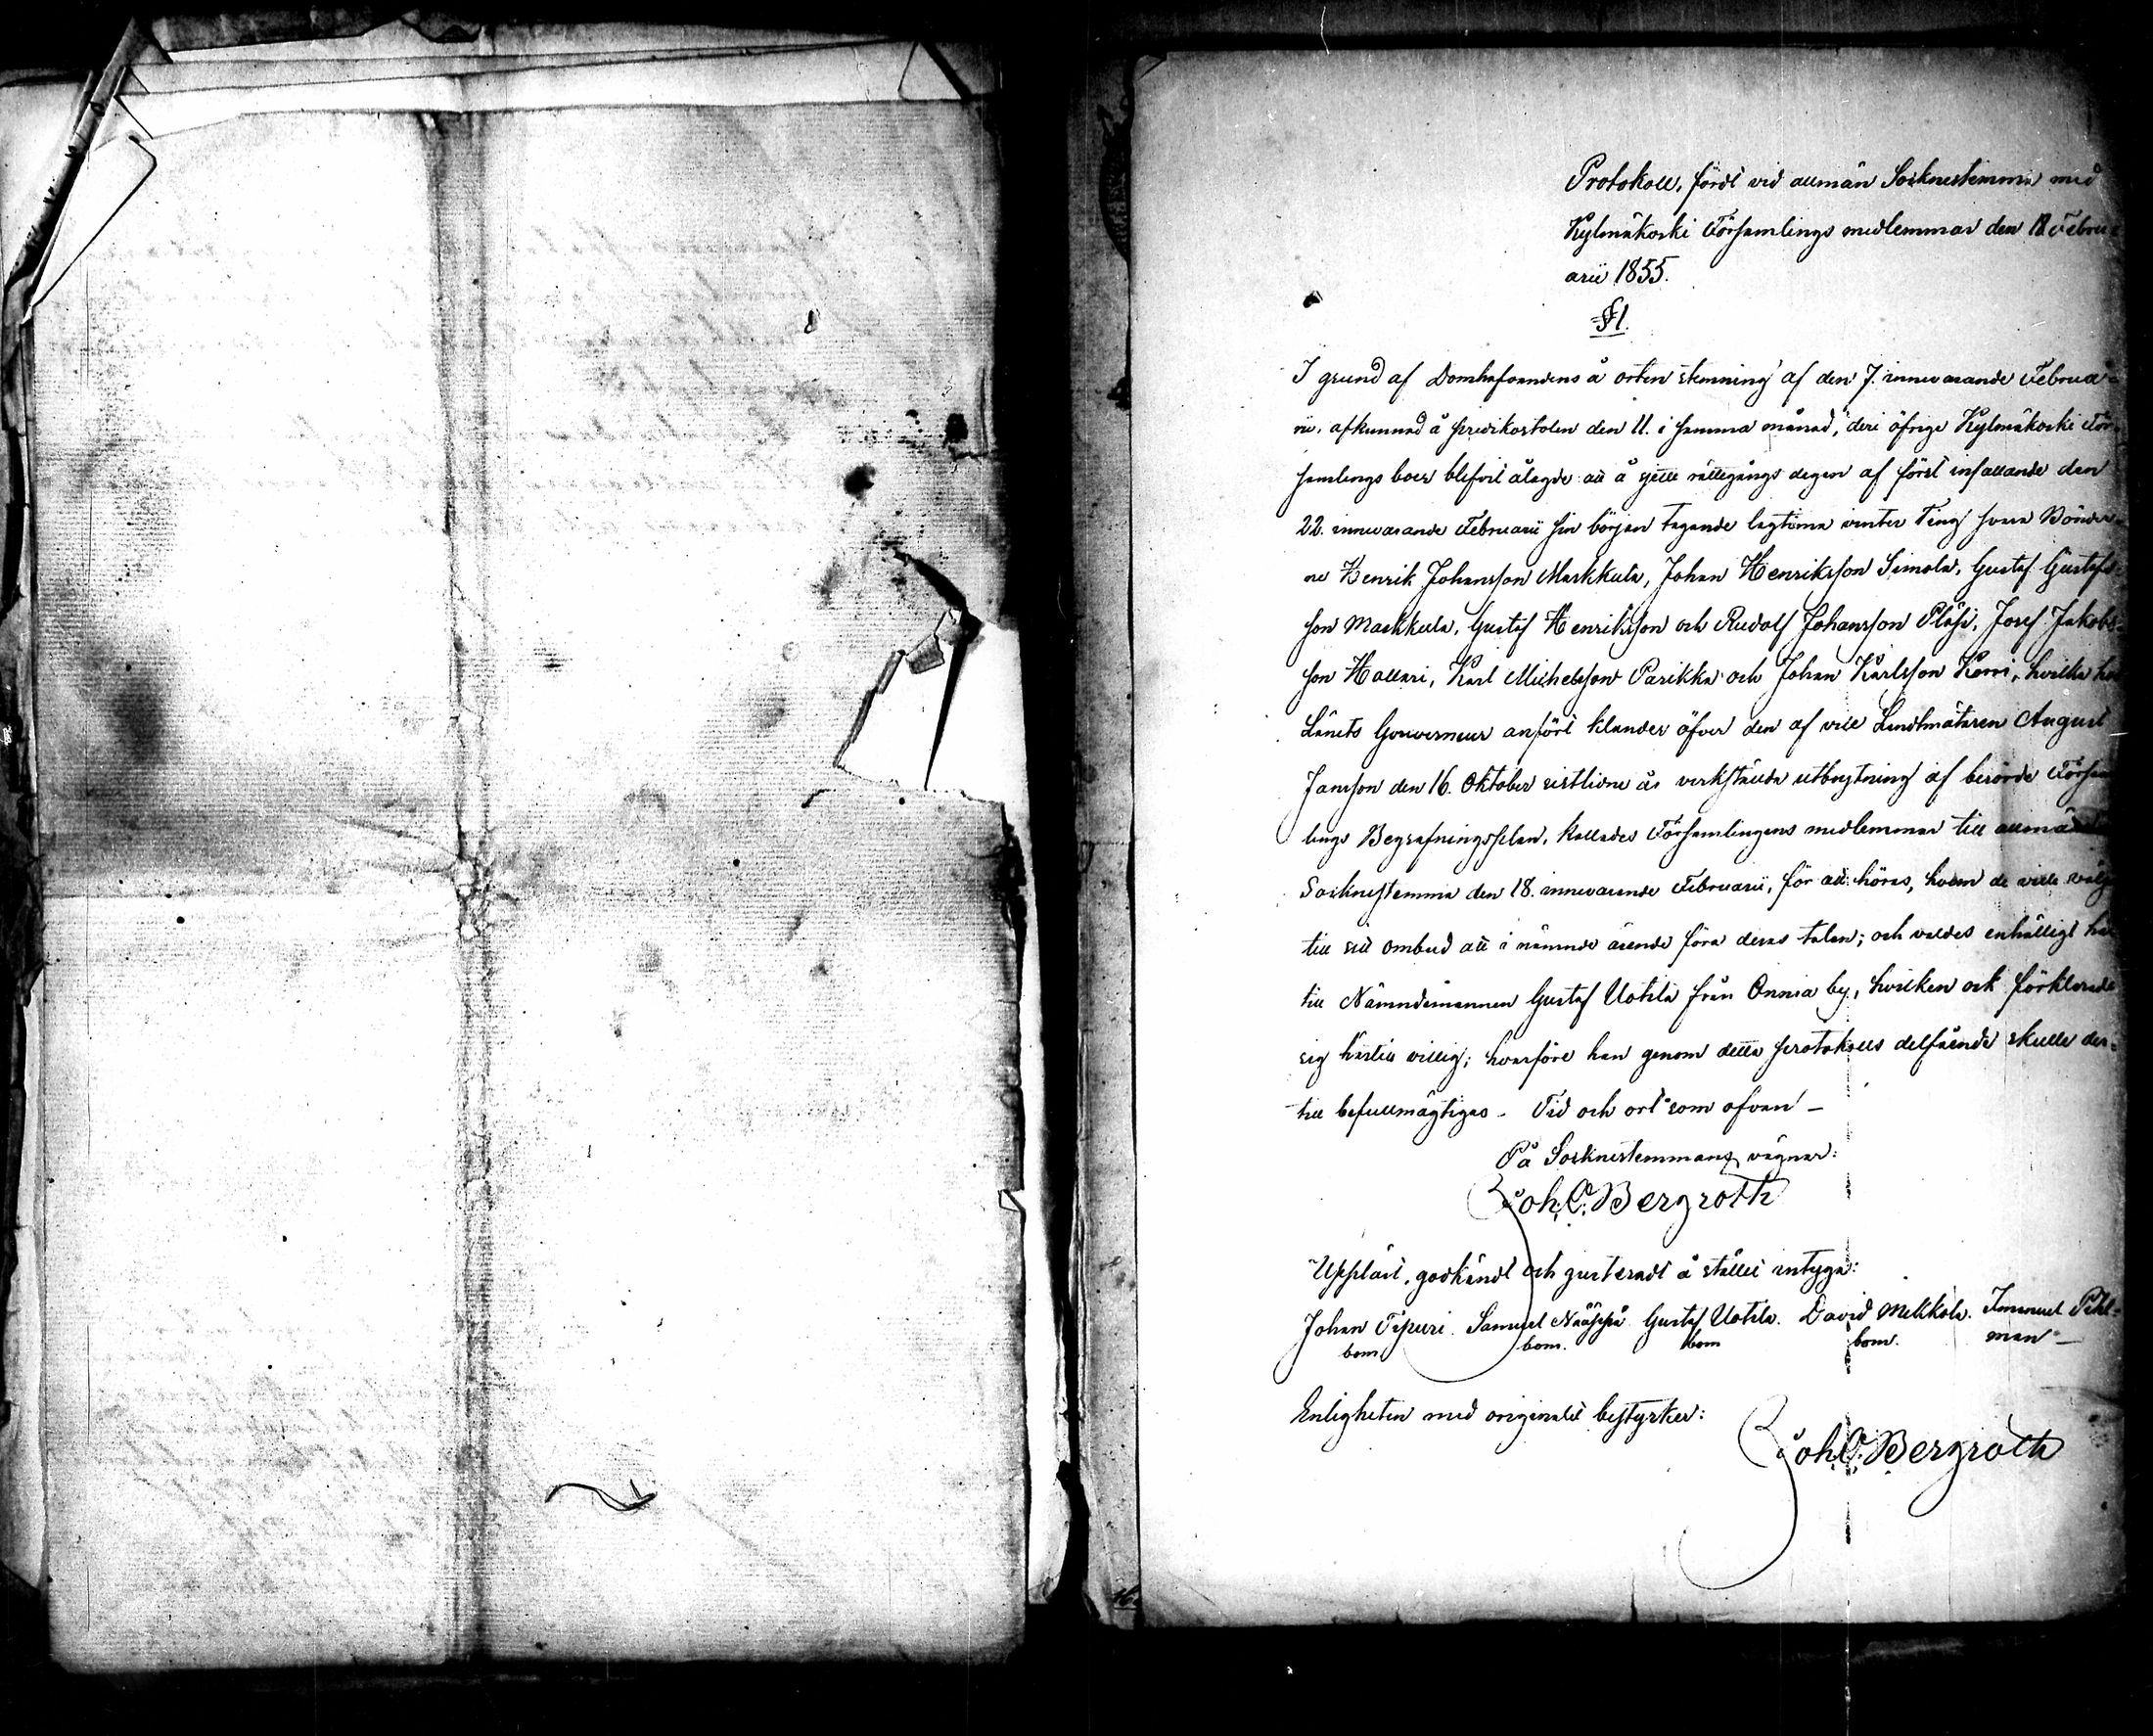 Protokoll, fördt vid allmän Socknestemma med
Kylmäkoski Församlings medlemmar den 18 Febru-
arii 1855.
§ 1.
I grund af Domhafvandens å orten stemning af den 7. innevarande Februa-
rii, afkunnad å predikostolen den 11. i samma månad, deri öfrige Kylmäkoski För-
samlings boer blifvit ålagde att å sjette rättegångs dagen af först infallande den
22. innevarande Februarii sin början tagande lagtima vinter Ting svara Bönder-
ne Henrik Johansson Markkula, Johan Henriksson Simola, Gustaf Gustafs-
son Markkula, Gustaf Henriksson och Rudolf Johansson Pläsi, Josef Jakobs-
son Hallari, Karl Michelsson Parikka och Johan Karlsson Korri, hvilka hos
Länets Gouverneur anfört klander öfver den af vice Landtmätaren August
Jansson den 16. Oktober sistlidne år verkställda utbrytning af berörde Försam-
lings Begrafningsplan, kallades Församlingens medlemmar till allmän
Socknestemma den 18. innevarande Februarii, för att höras, hvem de ville välja
till sitt ombud att i nämnde ärende föra deras talan; och valdes enhälligt här-
till Nämndemannen Gustaf Uotila från Onnia by, hvilken ock förklarade
sig härtill villig; hvarföre han genom detta protokolls delfående skulle der-
till befullmägtigas - Tid och ort som ofvan -
På Socknestemmans vägnar:
Joh. C. Bergroth
Uppläst, godkändt och justeradt å stället intyga:
Johan Tipuri. Samuel Nääppä Gustaf Uotila. David Mellola. Immanuel Pihl-
bom. bom. bom bom. man -
Enligheten med originalet bestyrker:
Joh. C. Bergroth